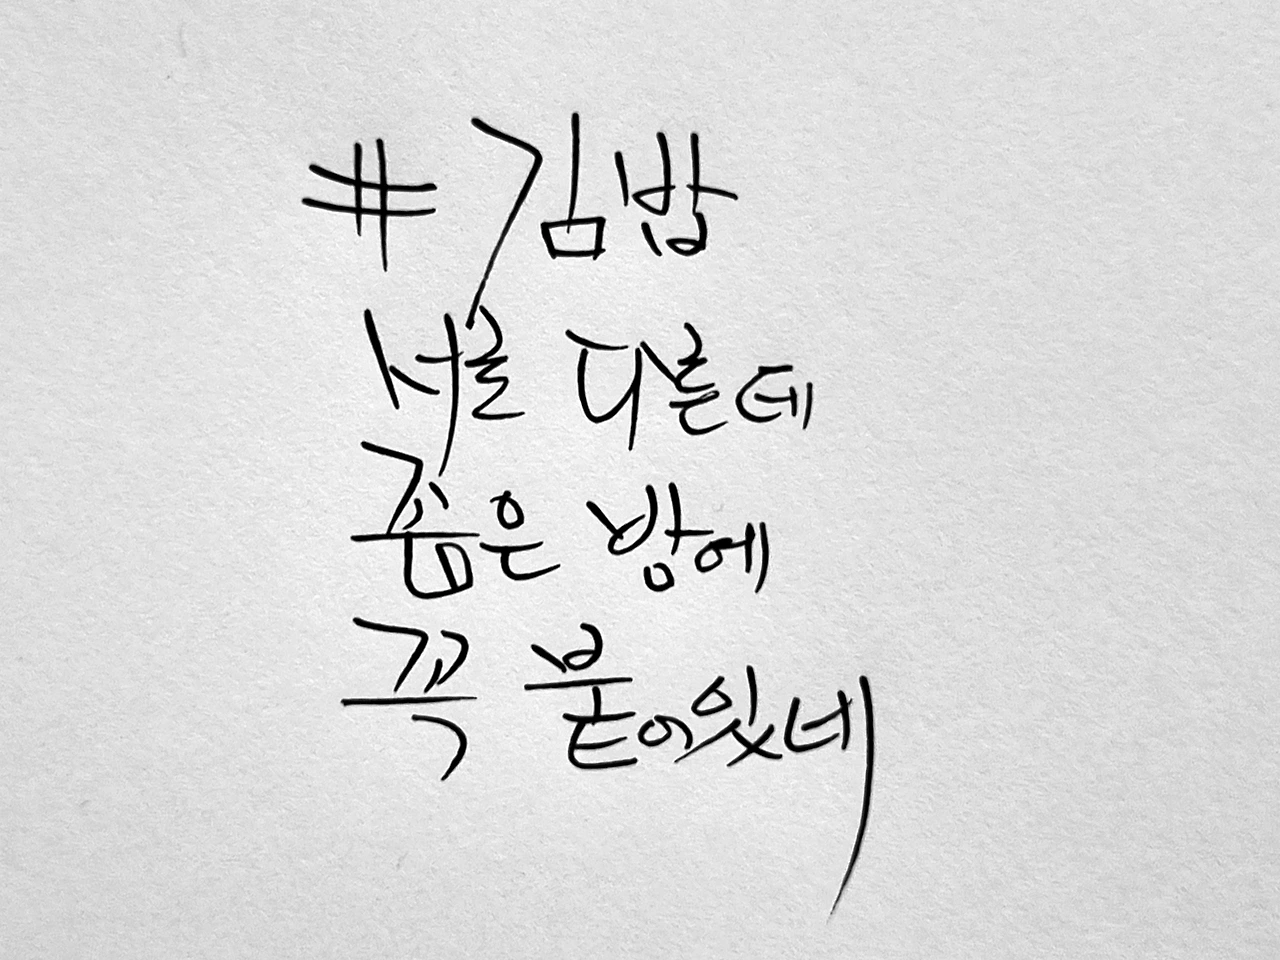 #김밥
서로 다른데
좁은 방에
꼭 붙어있네